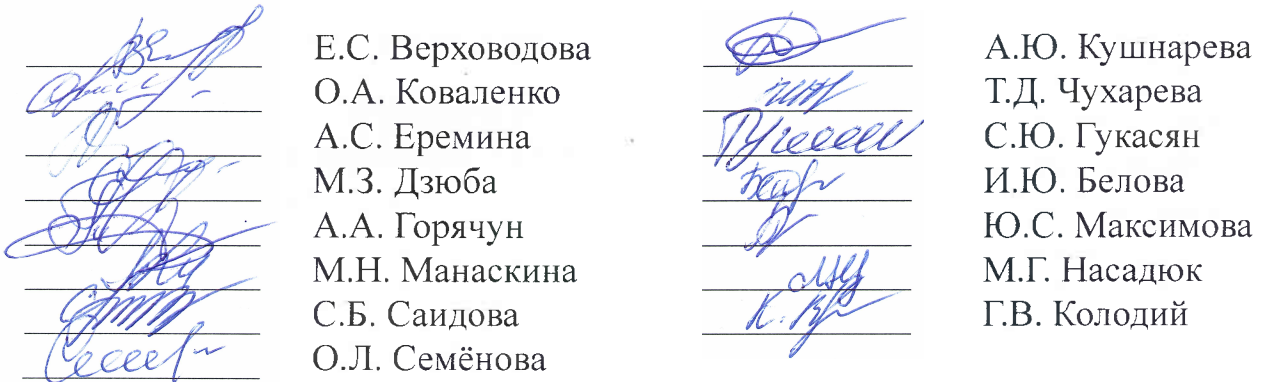 Е.С. Верховодова
О.А. Коваленко
А.С. Еремина
М.З. Дзюба
А.А. Горячун
М.Н. Манаскина
С.Б. Саидова
О.Л. Семёнова
А.Ю. Кушнарева
Т.Д. Чухарева
С.Ю. Гукасян
И.Ю. Белова
Ю.С. Максимова
М.Г. Насадюк
Г.В. Колодий